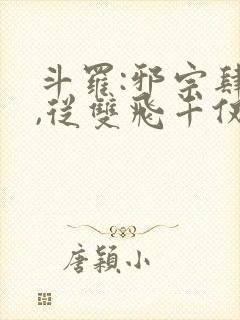 斗羅:邪宗肆
,從雙飛千仞
唐穎小